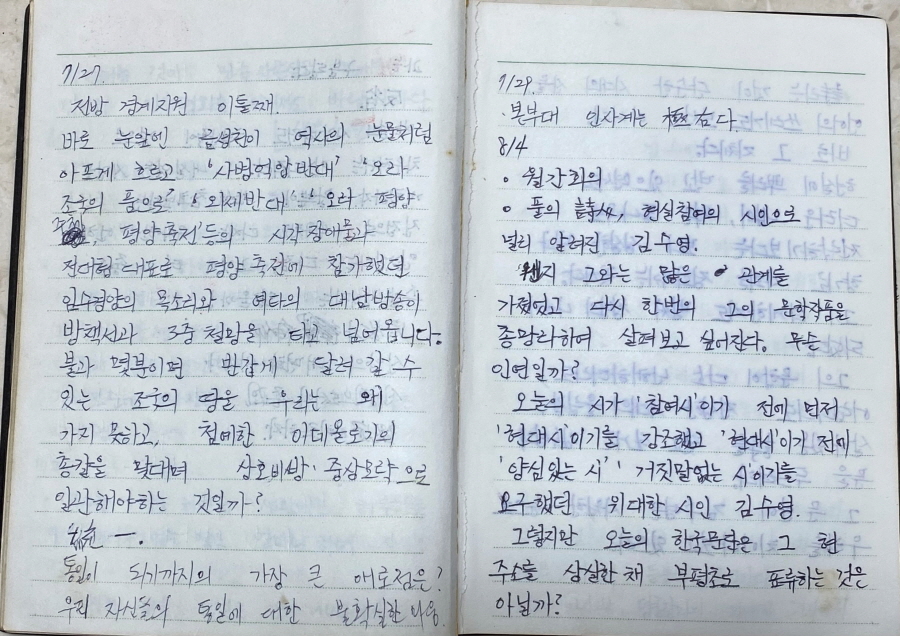 7/27.
전방 경계지원 이틀째.
바로 눈앞엔 역사의 눈물처럼
아프게 흐르고 '사법허압반대' '오라
조국의 품으로' '외세반대' '오라 평양
평양축전'등의 시각장애물과
전대협 대표로 평양축전에 참가했던
임수경양의 목소리와 여타의 대남방송이
방책선과 3중 철망을 타고 넘어옵니다.
불과 몇분이면 반갑게 달려 갈 수
있는 조국의 땅을 우리는 왜
가지 못하고, 첨예한 이데올로기의
총칼을 맞대며 상호비방·중상모략으로
일관해야하는 것일까?
統一.
통일이 되기까지의 가장 큰 애로점은?
우리 자신들의 통일에 대한 불확실한
7/29.
본부대 인사계는 極右다.
8/4
• 월간회의
• 풀의 詩人, 현실참여의 시인으로
널리 알려진 김수영.
웬지 그와는 많은 관계를
가졌었고 다시 한번의 그의 문학작품을
총망라하여 살펴보고 싶어진다. 무슨
인연일까?
오늘의 시가 '참여시'이기 전에 먼저
'현대시'이기를 강조했고 '현대시'이기 전에
'양심있는 시' '거짓말없는 시'이기를
요구했던 위대한 시인 김수영.
그렇지만 오늘의 한국문학은 그 현
주소를 상실한 채 부평초로 표류하는 것은
아닐까?